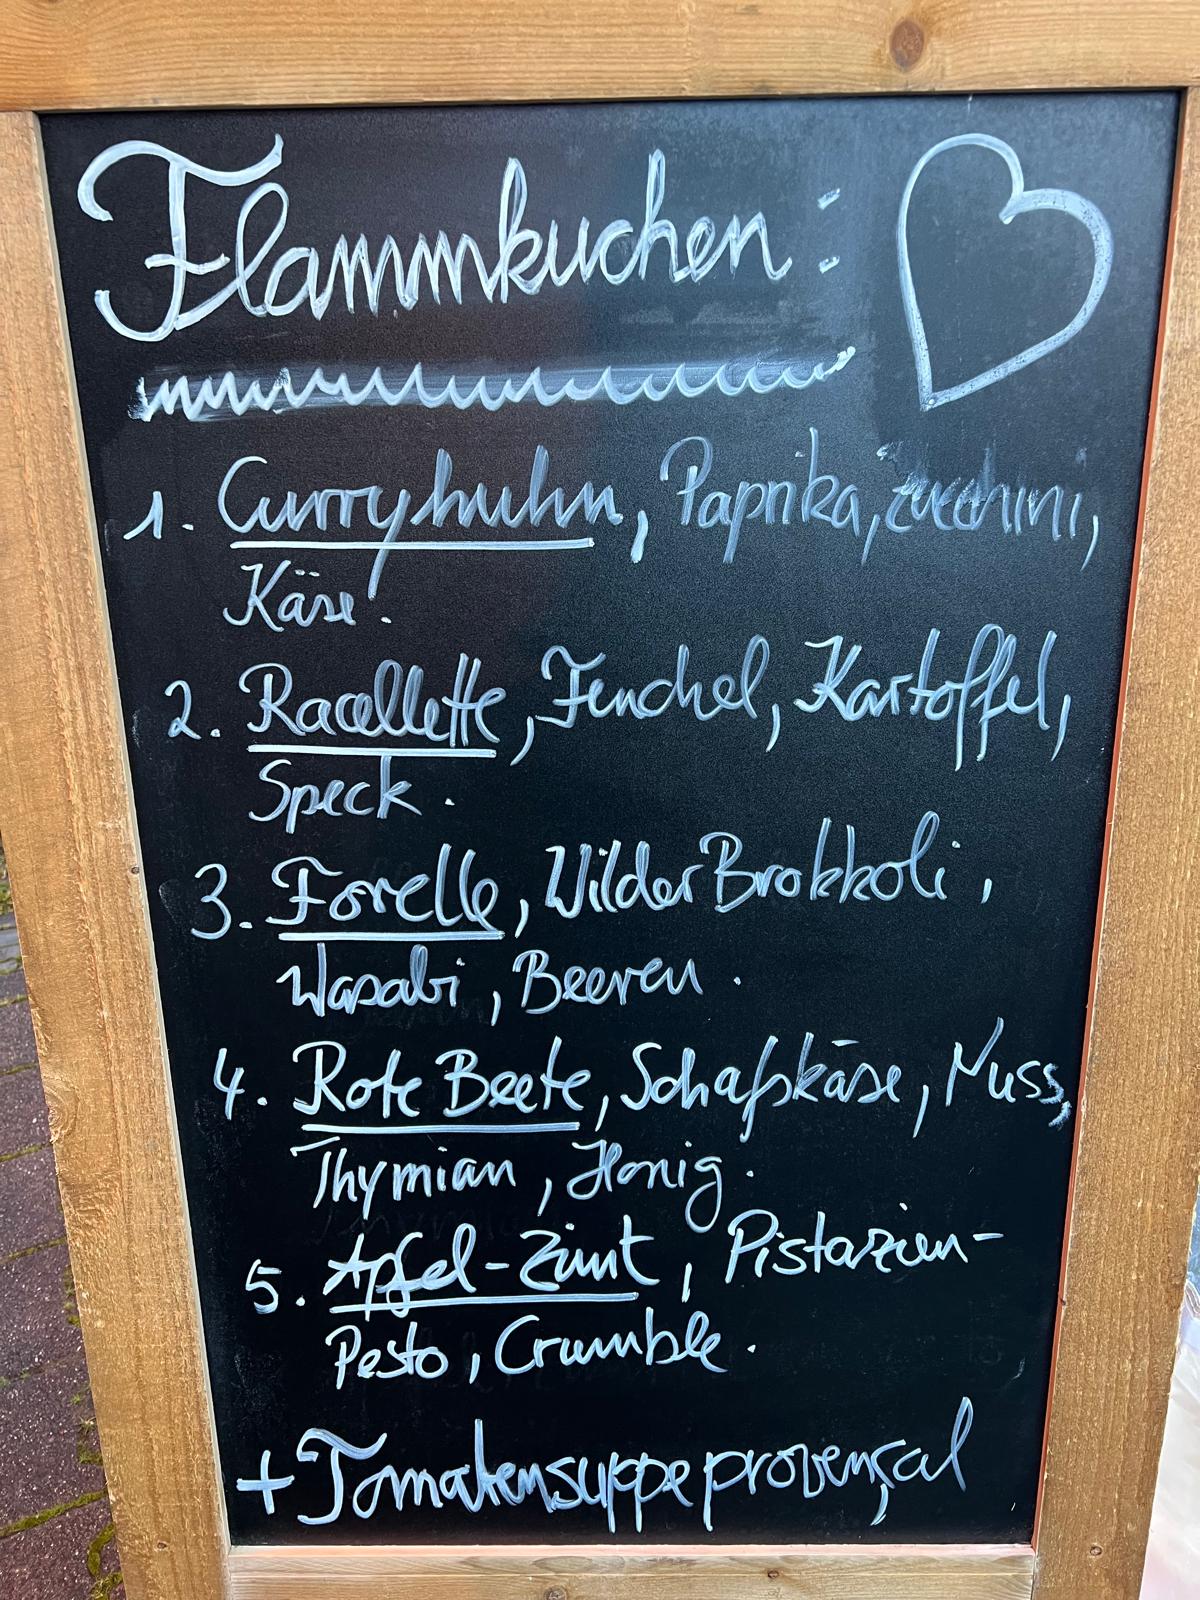 Flammkuchen:
1. Curryhuhn, Paprika, Zucchini,
Käse.
2. Racellette, Fenchel, Kartoffel,
Speck.
3. Forelle, Wilder Brokkoli,
Wasabi, Beeren.
4. Rote Beete, Schafskäse, Nuss,
Thymian, Honig.
5. Apfel-Zimt, Pistazien-
Pesto, Crumble.
+ Tomatensuppe provençal